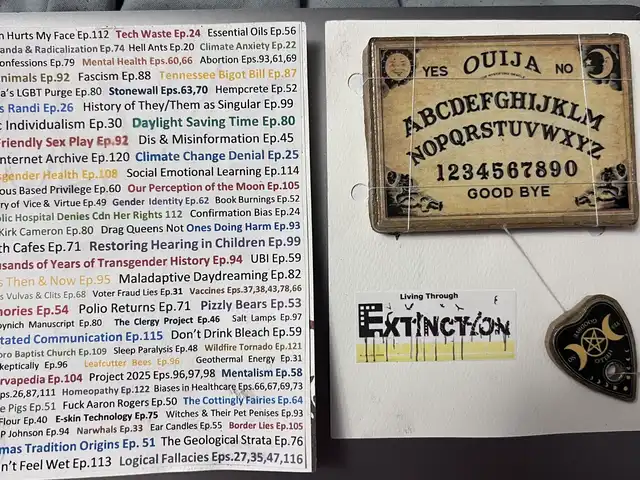 Hurts My Face Ep.112 Tech Waste Ep.24 Essential Oils Ep.56
& Radicalization Ep.74 Hell Ants Ep.20 Climate Anxiety Ep.22
Confessions Ep.79 Mental Health Eps.60,66 Abortion Eps.93,61,69
Ep.92 Fascism Ep.88 Tennessee Bigot Bill Ep.87
LGBT Purge Ep.80 Stonewall Eps.63,70 Hempcrete Ep.52
Randi Ep.26 History of They/Them as Singular Ep.99
Individualism Ep.30 Daylight Saving Time Ep.80
Friendly Sex Play Ep.92 Dis & Misinformation Ep.45
Internet Archive Ep.120 Climate Change Denial Ep.25
Health Ep.108 Social Emotional Learning Ep.114
Based Privilege Ep.60 Our Perception of the Moon Ep.105
of Vice & Virtue Ep.49 Gender Identity Ep.62 Book Burnings Ep.52
Hospital Denies Cdn Her Rights 112 Confirmation Bias Ep.24
Kirk Cameron Ep.80 Drag Queens Not Ones Doing Harm Ep.93
Cafes Ep.71 Restoring Hearing in Children Ep.99
of Years of Transgender History Ep.94 UBI Ep.59
Then & Now Ep.95 Maladaptive Daydreaming Ep.82
Vulvas & Clits Ep.68 Voter Fraud Lies Ep.31 Vaccines Eps.37,38,43,78,66
Ep.54 Polio Returns Ep.71 Pizzly Bears Ep.53
Manuscript Ep.80 The Clergy Project Ep.46 Salt Lamps Ep.97
Communication Ep.115 Don't Drink Bleach Ep.59
Baptist Church Ep.109 Sleep Paralysis Ep.48 Wildfire Tornado Ep.121
Ep.96 Leafcutter Bees Ep.96 Geothermal Energy Ep.31
Ep.104 Project 2025 Eps.96,97,98 Mentalism Ep.58
Eps.26,87,111 Homeopathy Ep.122 Biases in Healthcare Eps.66,67,69,73
Pigs Ep.51 Fuck Aaron Rogers Ep.50 The Cottingly Fairies Ep.64
Flour Ep.40 E-skin Technology Ep.75 Witches & Their Pet Penises Ep.93
Johnson Ep.94 Narwhals Ep.33 Ear Candles Ep.55 Border Lies Ep.105
Tradition Origins Ep. 51 The Geological Strata Ep.76
Feel Wet Ep.113 Logical Fallacies Eps.27,35,47,116
OUIJA
YES NO
ABCDEFGHIJKLM
NOPQRSTUVWXYZ
1234567890
GOOD BYE
Living Through
EXTINCTION